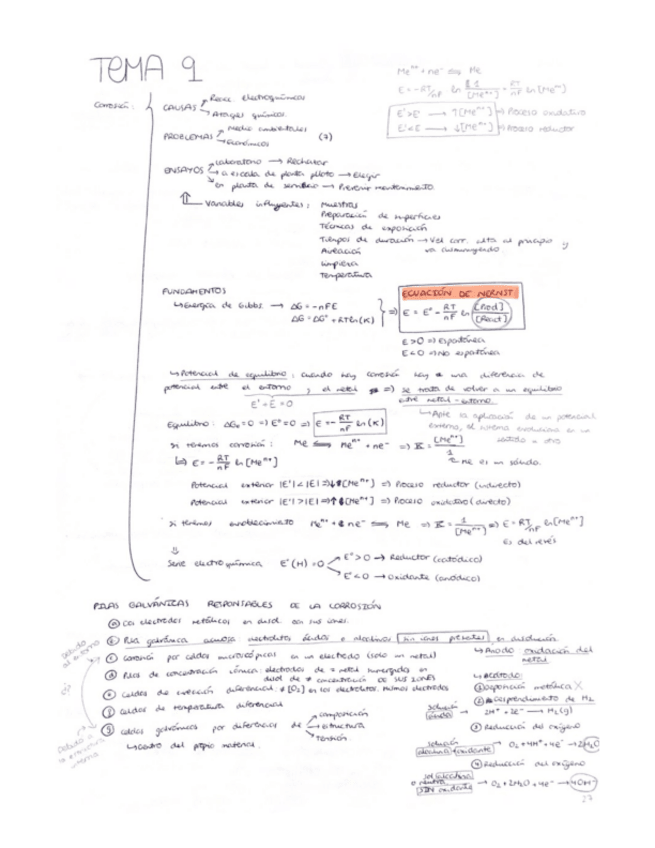 TEMA 9
Me^n+ + ne^- ⇌ Me
E = -RT/nF ln 1/[Me^n+] = RT/nF ln [Me^n+]
E'>E → ↑[Me^n+] ⇒ Proceso oxidativo
E'<E → ↓[Me^n+] ⇒ Proceso reductor
Corrosión:
CAUSAS Reacc. electroquímicas
Ataques químicos
PROBLEMAS Medio ambientales
Económicos
(7)
ENSAYOS Laboratorio → Rechazar
a escala de planta piloto → Elegir
en planta de servicio → Prevenir mantenimiento
Variables influyentes: Muestras
Preparación de superficies
Técnicas de exposición
Tiempos de duración → Vel corr. alta al principio y
va disminuyendo
Aireación
Limpieza
Temperatura
FUNDAMENTOS
↳ Energía de Gibbs → ΔG = -nFE
ΔG = ΔG° + RT ln(K)
ECUACIÓN DE NERNST
⇒ E = E° - RT/nF ln [Prod]/[React]
E > 0 ⇒ Espontánea
E < 0 ⇒ No espontánea
↳ Potencial de equilibrio: cuando hay corrosión hay una diferencia de
potencial entre el entorno y el metal ⇒ se trata de volver a un equilibrio
entre metal-entorno.
E' + E = 0
Equilibrio: ΔG₀ = 0 ⇒ E° = 0 ⇒ E = - RT/nF ln(K)
aplicación de un potencial
externo, el sistema evoluciona en un
sentido u otro
Si tenemos corrosión: Me ⇌ Me^n+ + ne^- ⇒ K = [Me^n+]/1
Me es un sólido.
↳ E = - RT/nF ln [Me^n+]
Potencial exterior |E'| < |E| ⇒ ↓[Me^n+] ⇒ Proceso reductor (indirecto)
Potencial exterior |E'| > |E| ⇒ ↑[Me^n+] ⇒ Proceso oxidativo (directo)
Si tenemos Me^n+ + ne^- ⇌ Me ⇒ K = 1/[Me^n+] ⇒ E = RT/nF ln [Me^n+]
Es del revés
⇓
Serie electroquímica E°(H) = 0 E° > 0 → Reductor (catódico)
E° < 0 → Oxidante (anódico)
PILAS GALVÁNICAS RESPONSABLES DE LA CORROSIÓN
ⓐ Con electrodos metálicos en disol. con sus iones.
ⓑ Pila galvánica acuosa electrolitos ácidos o alcalinos sin iones presentes en disolución
ⓒ Corrosión por celdas microscópicas en un electrodo (solo un metal)
ⓓ Pilas de concentración iónica: electrodos de = metal sumergidos en
disol de ≠ concentración de sus iones
ⓔ Celdas de aireación diferencial: ≠ [O₂] en los electrolitos. Mismos electrodos
ⓕ Celdas de temperatura diferenciales
ⓖ Celdas galvánicas por diferencias de composición
estructura
Tensión
↳ dentro del propio material.
Debido al entorno
Debido a la estructura interna
↳ Ánodo: oxidación del
metal
↳ Cátodo:
① Deposición metálica X
② Desprendimiento de H₂
solución ácida → 2H⁺ + 2e⁻ → H₂(g)
③ Reducción del oxígeno
oxidante → O₂ + 4H⁺ + 4e⁻ → 2H₂O
④ Reducción del oxígeno
sol alcalina o neutra SIN oxidante → O₂ + 2H₂O + 4e⁻ → 4OH⁻
27